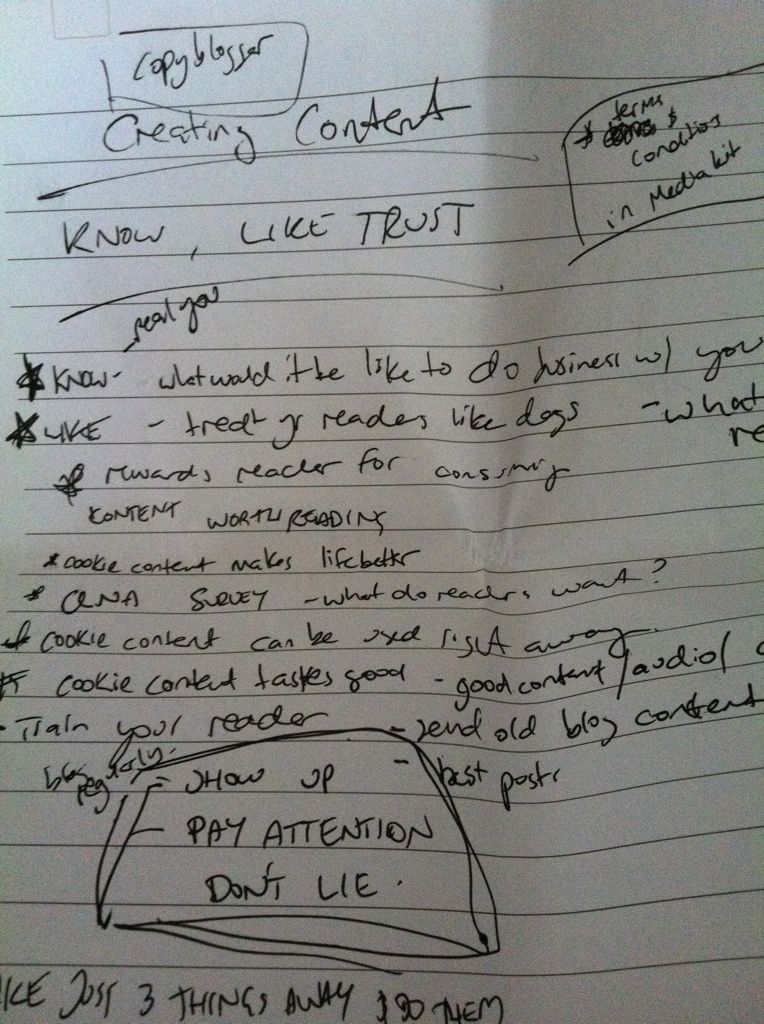 copyblogger
Creating Content
* terms &
conditions
in Media kit
KNOW, LIKE TRUST
real you
* KNOW - what would it be like to do business w/ you
* LIKE - treat yr readers like dogs - what
re
* rewards reader for consuming
CONTENT WORTH READING
* cookie content makes life better
* SURVEY - what do readers want?
* cookie content can be used right away.
* cookie content tastes good - good content/audio/
- Train your reader - send old blog content
blog regularly.
- SHOW UP - best posts
- PAY ATTENTION
DON'T LIE.
3 THINGS AWAY & DO THEM